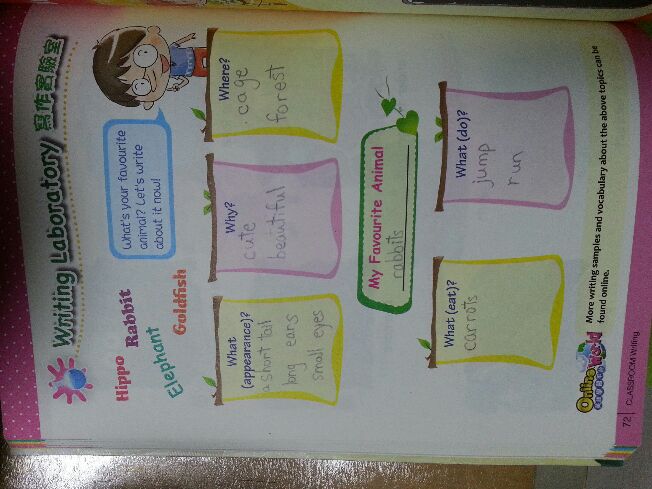 Writing Laboratory 寫作實驗室
What's your favourite
animal? Let's write
about it now!
Hippo
Rabbit
Elephant
Goldfish
What
(appearance)?
a short tail
long ears
small eyes
Why?
cute
beautiful
Where?
cage
forest
My Favourite Animal
rabbits
What (eat)?
carrots
What (do)?
jump
run
Online
World
More writing samples and vocabulary about the above topics can be
found online.
72 | CLASSROOM Writing